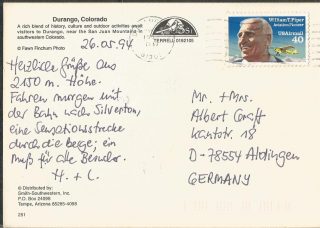 Durango, Colorado
A rich blend of history, culture and outdoor activities await
visitors to Durango, near the San Juan Mountains in
southwestern Colorado.
© Fawn Finchum Photo
26.05.94
Herzliche Grüße aus
2150 m. Höhe.
Fahren morgen mit
der Bahn nach Silverton,
eine Sensationsstrecke
durch die Berge; ein
Muß für alle Besucher.
H. + L.
© Distributed by:
Smith-Southwestern, Inc.
P.O. Box 24098
Tempe, Arizona 85285-4098
251
TERRELL
William T. Piper
Aviation Pioneer
USAirmail
40
Mr. + Mrs.
Albert
Kantstr. 18
D-78554 Aldingen
GERMANY